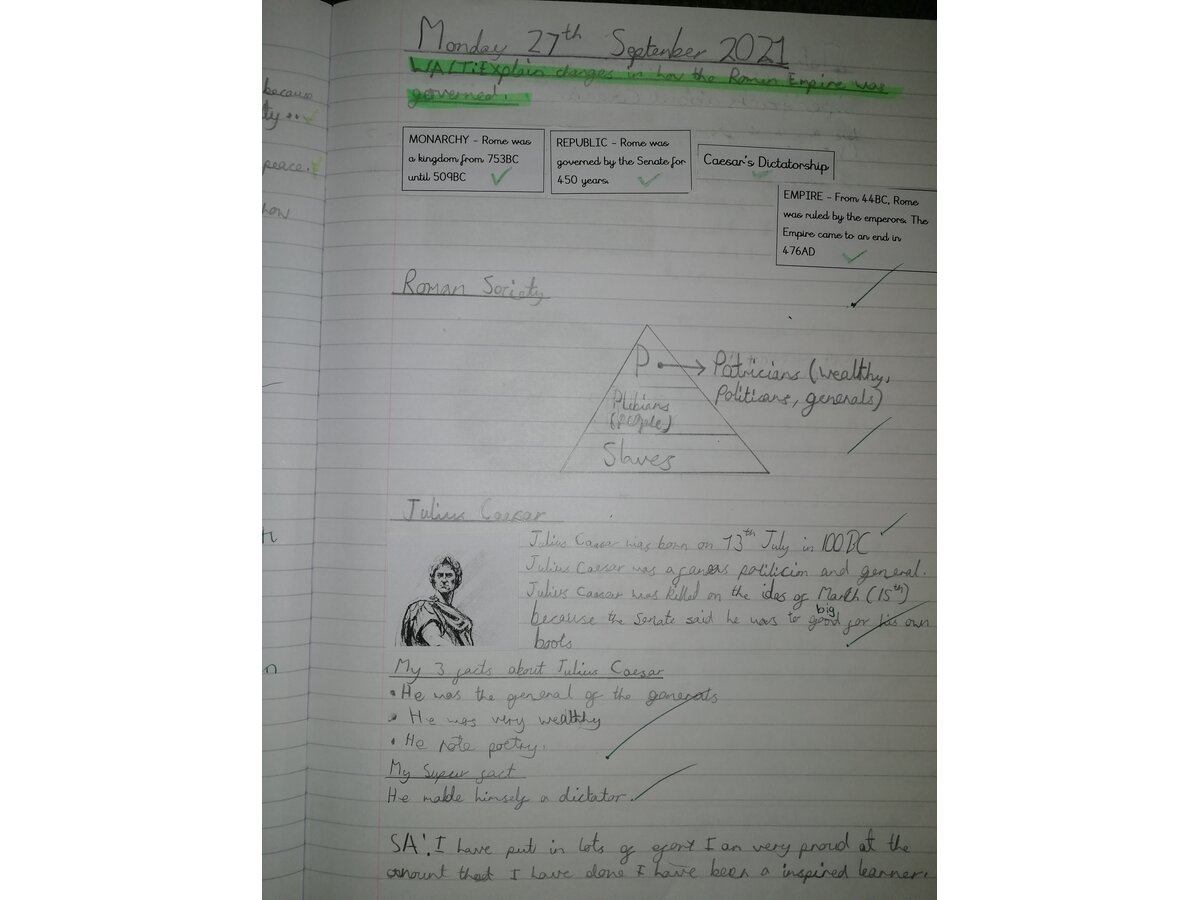 because
ty...
peace.
how
n
Monday 27th September 2021
WALT: Explain changes in how the Roman Empire was
governed.
MONARCHY - Rome was
a kingdom from 753BC
until 509BC
REPUBLIC - Rome was
governed by the Senate for
450 years.
Caesar's Dictatorship
EMPIRE - From 44BC, Rome
was ruled by the emperors. The
Empire came to an end in
476AD
Roman Society
P → Patricians (wealthy,
politicans, generals)
Plebians
(people)
Slaves
Julius Caesar
Julius Caesar was born on 13th July in 100BC
Julius Caesar was a politicion and general.
Julius Caesar was killed on the ides of March (15th)
because the Senate said he was to big for his own
boots
My 3 facts about Julius Caesar
• He was the general of the generals
• He was very wealthy
• He rote poetry.
My Super fact
He made himself a dictator.
SA: I have put in lots of efort I am very proud at the
amount that I have done I have been a inspired learner.